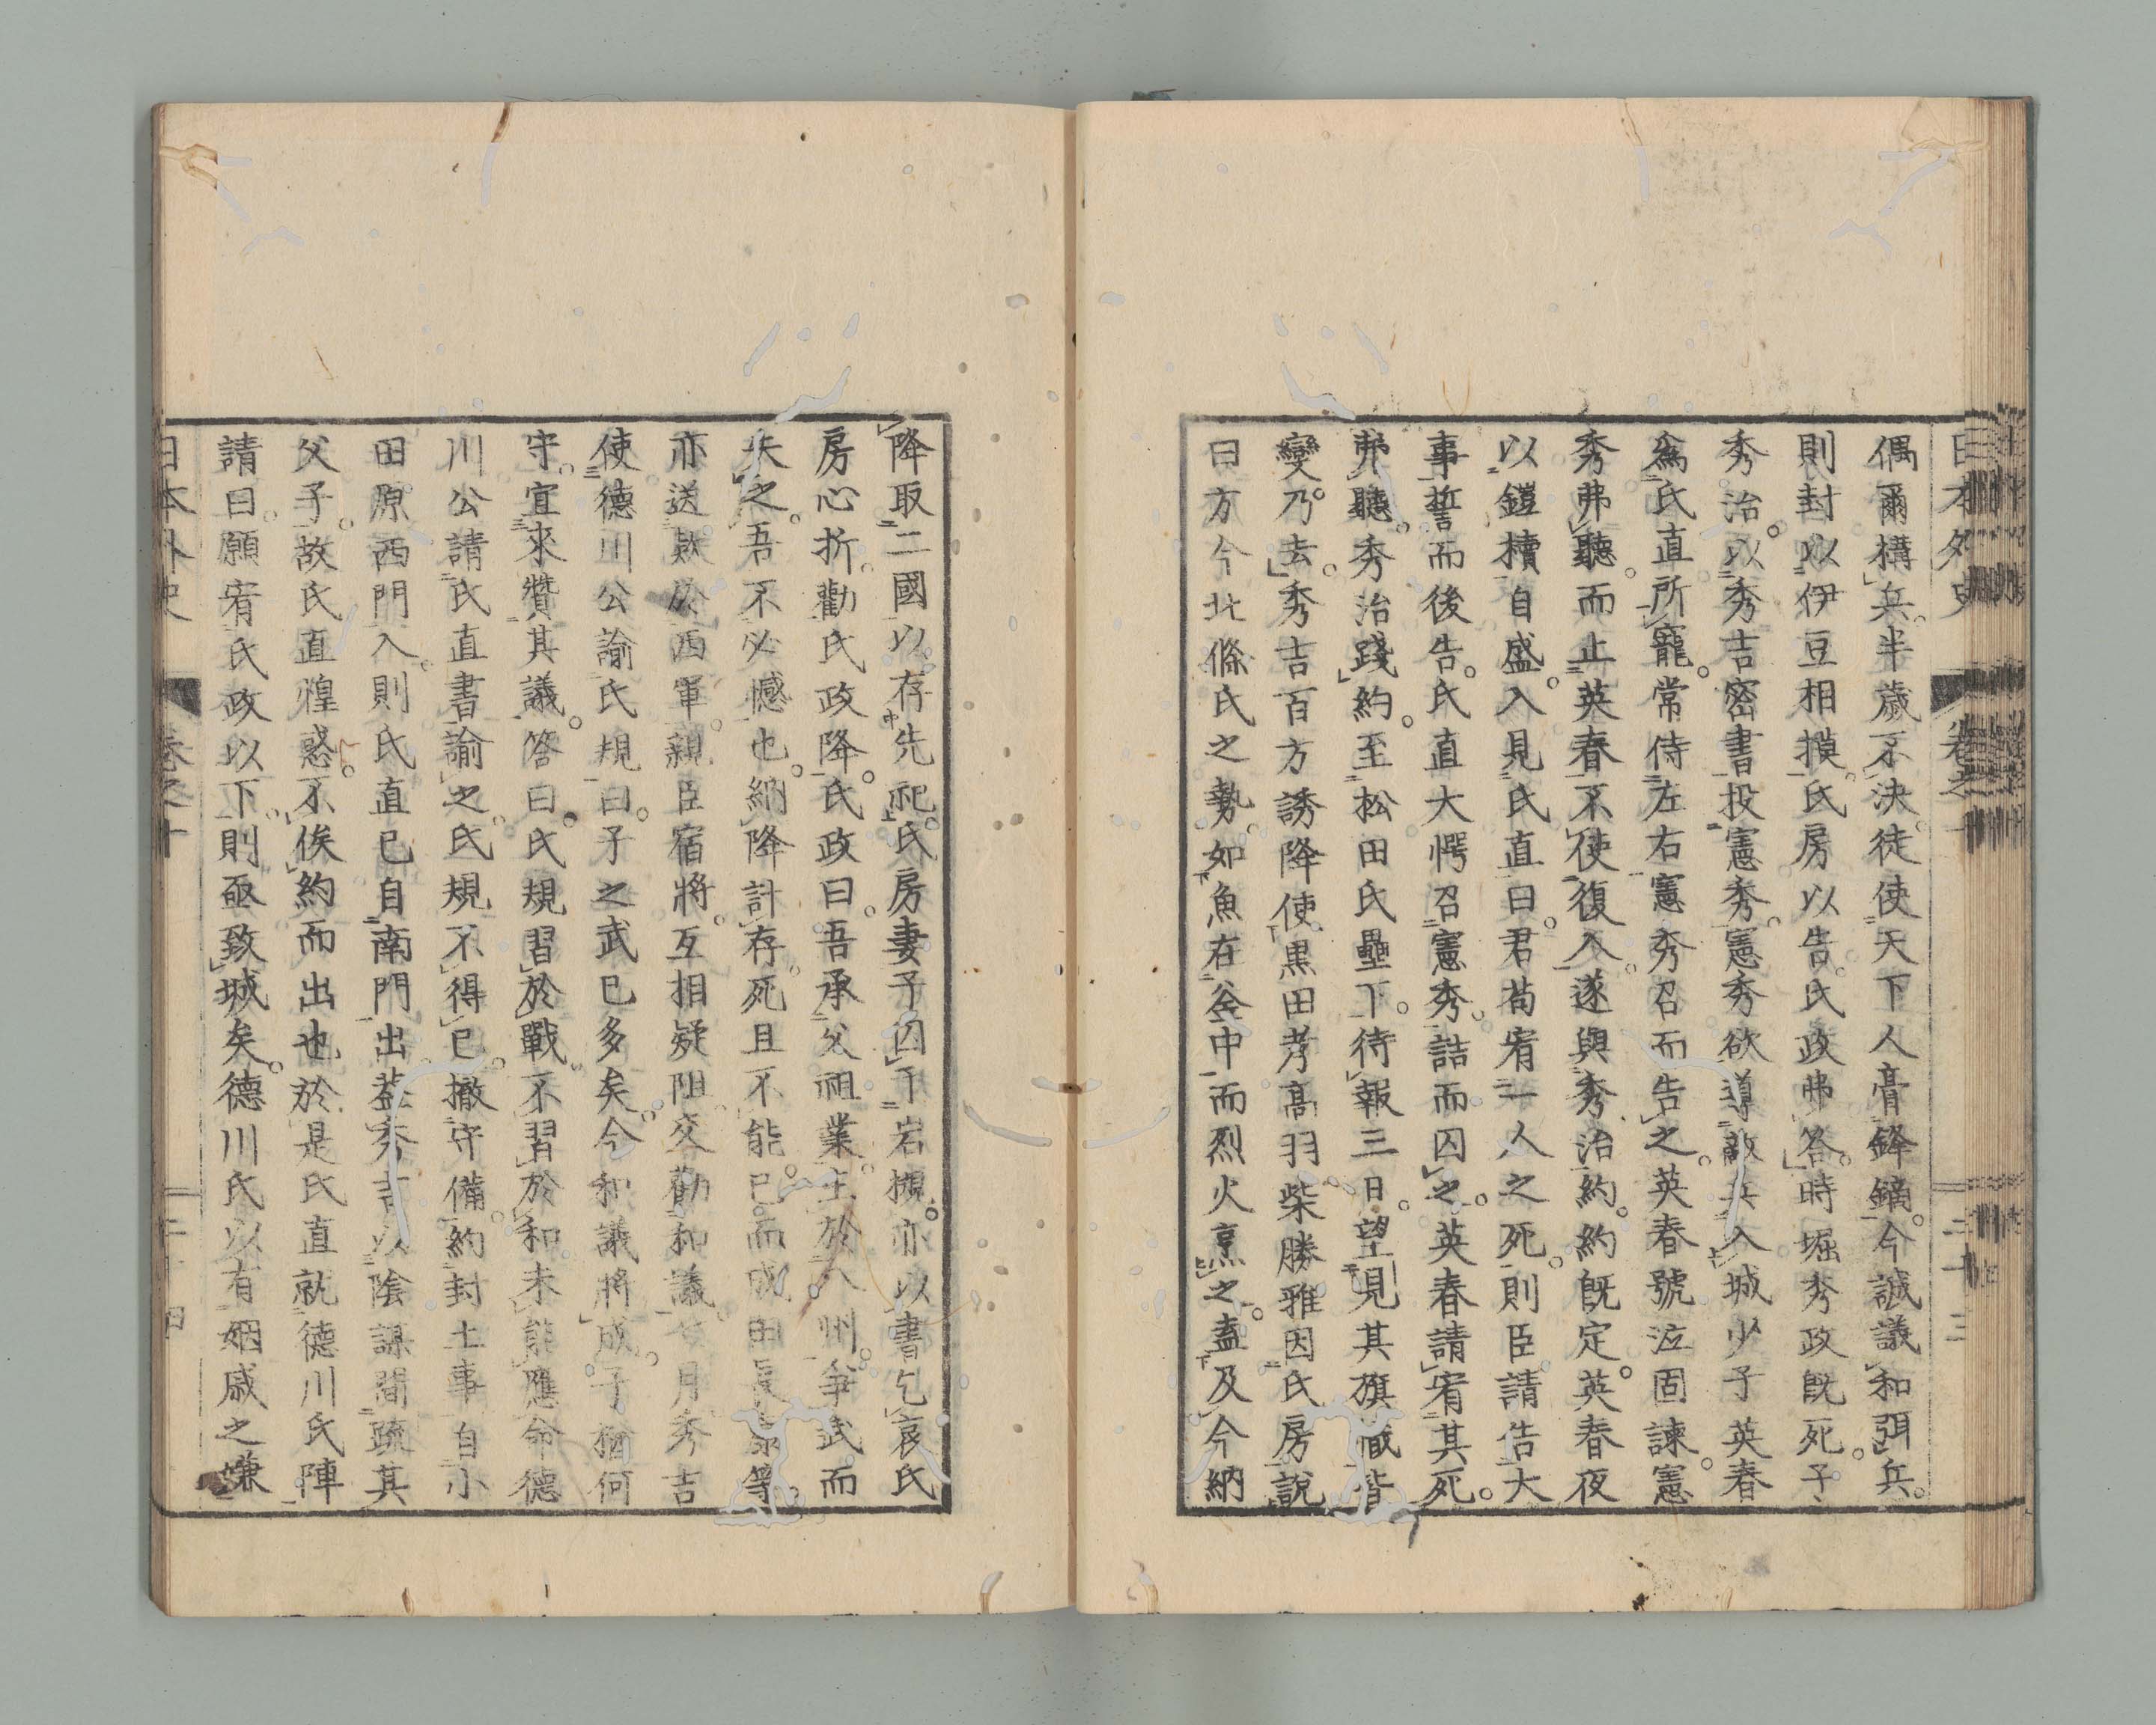 日本外史 卷之十 二十三
偶爾構兵。半歳不決。徒使天下人膏鋒鏑。今誠議和弭兵。
則封以伊豆相摸。氏房以告。氏政弗答。時堀秀政既死。子
秀治。以秀吉密書投憲秀。憲秀欲導敵兵入城。少子英春
爲氏直所寵。常侍左右。憲秀召而告之。英春號泣固諫。憲
秀弗聽。而止英春不使復入。遂與秀治約。約既定。英春夜
以鎧櫝自盛。入見氏直曰。君苟宥一人之死。則臣請告大
事。誓而後告。氏直大愕。召憲秀。詰而囚之。英春請宥其死。
弗聽。秀治踐約。至松田氏壘下。待報三日。望見其旗幟皆
變。乃去。秀吉百方誘降。使黒田孝高羽柴勝雅因氏房説
曰。方今北條氏之勢。如魚在釜中而烈火烹之。盍及今納
降取二國以存先祀。氏房妻子囚于岩槻。亦以書乞哀。氏
房心折。勸氏政降。氏政曰。吾承父祖業。主於八州。爭武而
失之。吾不必憾也。納降計存。死且不能。已而成田長泰等。
亦送款於西軍。親臣宿將。互相疑阻。交勸和議。月秀吉
使德川公諭氏規曰。子之武已多矣。今和議將成。子猶何
守。宜來贊其議。答曰。氏規習於戰。不習於和。未能應命。德
川公請氏直書諭之。氏規不得已。撤守備。約封土事。自小
田原西門入。則氏直已自南門出。蓋秀吉以陰謀間疏其
父子。故氏直惶惑。不俟約而出也。於是氏直就德川氏陣
請曰。願宥氏政以下。則亟致城矣。德川氏以有姻戚之嫌
日本外史 卷之十 二十四